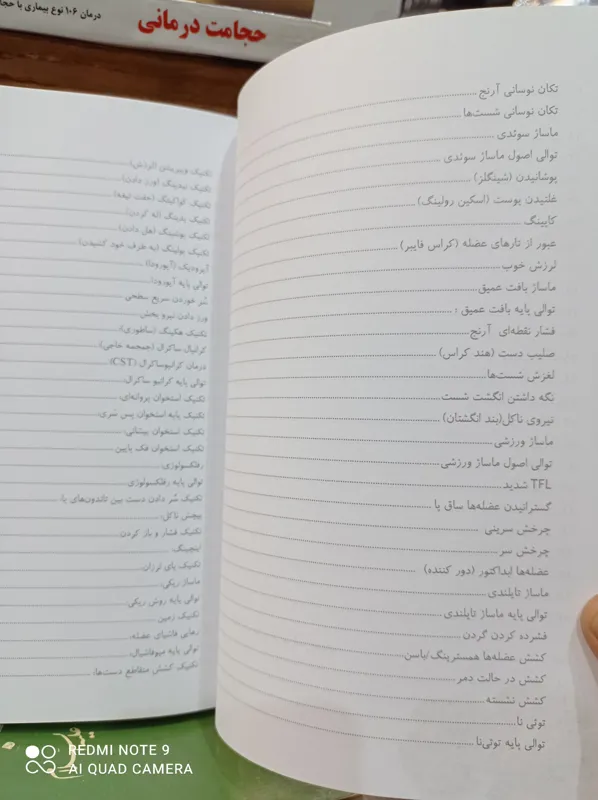 درمان ۱۰۶ نوع بیماری با حجا
حجامت درمانی
تکان نوسانی آرنج
تکان نوسانی شست‌ها
ماساژ سوئدی
توالی اصول ماساژ سوئدی
پوشانیدن (شینگلز)
غلتیدن پوست (اسکین رولینگ)
کاپینگ
عبور از تارهای عضله (کراس فایبر)
لرزش خوب
ماساژ بافت عمیق
توالی پایه بافت عمیق
فشار نقطه‌ای آرنج
صلیب دست (هند کراس)
لغزش شست‌ها
نگه داشتن انگشت شست
نیروی ناکل(بند انگشتان)
ماساژ ورزشی
توالی اصول ماساژ ورزشی
TFL شدید
گسترانیدن عضله‌ها ساق پا
چرخش سرینی
چرخش سر
عضله‌ها ابداکتور (دور کننده)
ماساژ تایلندی
توالی پایه ماساژ تایلندی
فشرده کردن گردن
کشش عضله‌ها همسترینگ/باسن
کشش در حالت دمر
کشش نشسته
توئی نا
توالی پایه توئی‌نا
تکنیک ویبریشن (لرزش)
تکنیک نیدینگ (ورز دادن)
تکنیک کواکینگ (جفت تیغه)
تکنیک پرینگ (له کردن)
تکنیک پوشینگ (هل دادن)
تکنیک پولینگ (به طرف خود کشیدن)
آیرودیک (آیورودا)
توالی پایه آیورودا
سُر خوردن سریع سطحی
ورز دادن نیرو بخش
تکنیک هکینگ (ساطوری)
کرانیال ساکرال (جمجمه خاجی)
درمان کرانیوساکرال (CST)
توالی پایه کرانیو ساکرال
تکنیک استخوان پروانه‌ای
تکنیک پایه استخوان پس سَری
تکنیک استخوان پیشانی
تکنیک استخوان فک پایین
رفلکسولوژی
توالی پایه رفلکسولوژی
تکنیک سُر دادن دست بین تاندون‌های پا
پیچش ناکل
تکنیک فشار و باز کردن
اینچینگ
تکنیک پای لرزان
ماساژ ریکی
توالی پایه روش ریکی
تکنیک زمین
رهایی فاشیای عضله
توالی پایه میوفاشیال
تکنیک کشش متقاطع دست‌ها
REDMI NOTE 9
AI QUAD CAMERA